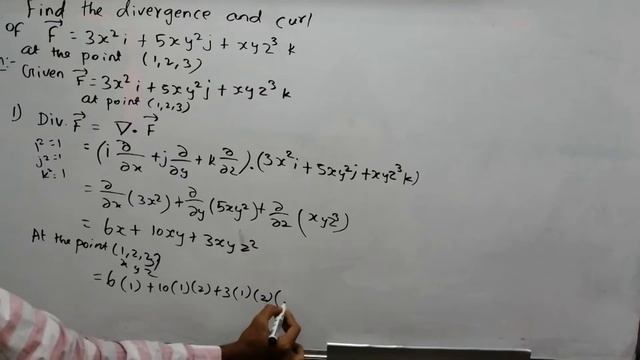 Find the divergence and curl
of F⃗ = 3x²i + 5xy²j + xyz³k
at the point (1,2,3)
:- Given F⃗ = 3x²i + 5xy²j + xyz³k
at point (1,2,3)
1) Div. F⃗ = ∇ • F⃗
i²=1
j²=1
k²=1
= (i ∂/∂x + j ∂/∂y + k ∂/∂z) . (3x²i + 5xy²j + xyz³k)
= ∂/∂x (3x²) + ∂/∂y (5xy²) + ∂/∂z (xyz³)
= 6x + 10xy + 3xyz²
At the point (1,2,3)
x y z
= 6(1) + 10(1)(2) + 3(1)(2)(